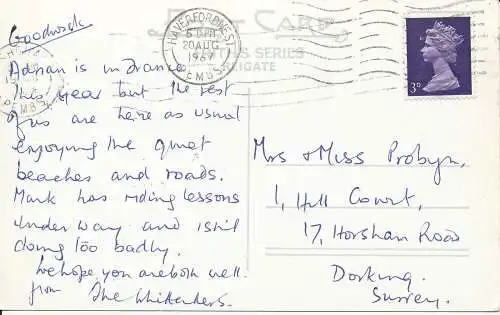 Goodwick
POST CARD
HAVERFORDWEST
6 PM
20 AUG
1969
PEMBS
SERIES
REIGATE
3D
Adrian is in France
this year but the rest
of us are here as usual
enjoying the quiet
beaches and roads.
Mark has riding lessons
under way and isn't
doing too badly.
We hope you are both well.
from The Whittenders.
Mrs & Miss Probyn,
1, Hill Court,
17, Horsham Road
Dorking.
Surrey.